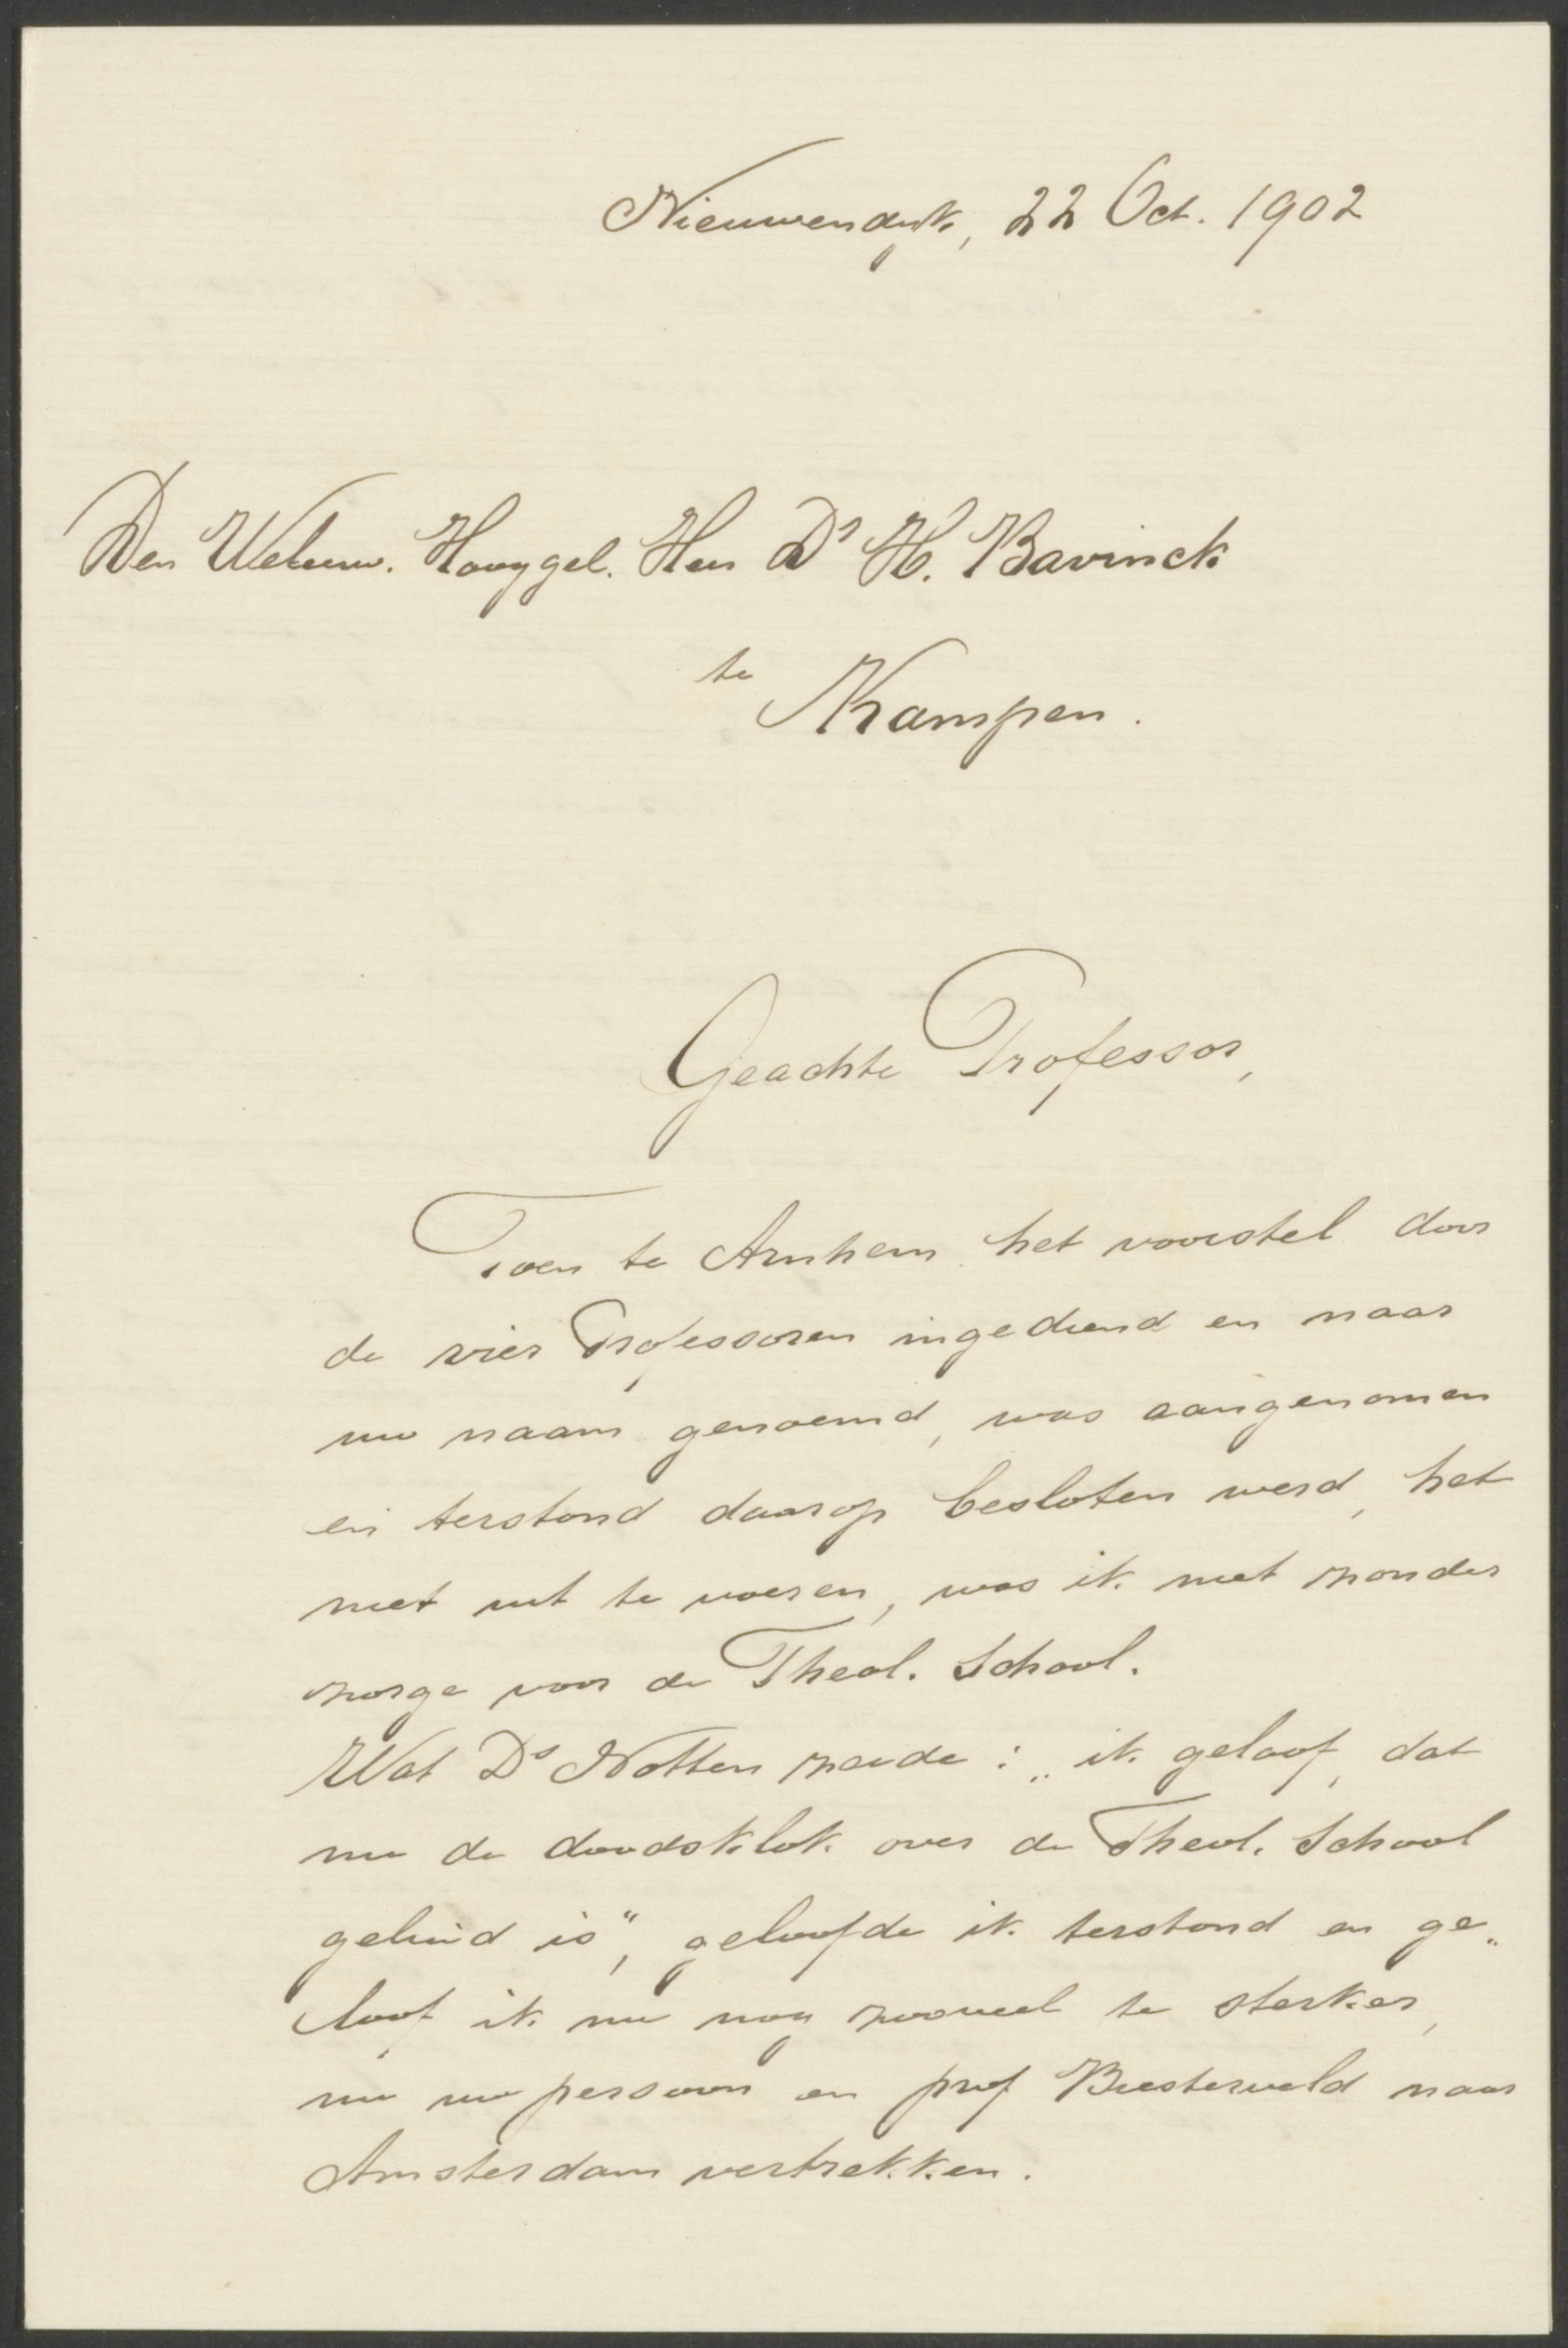 Nieuwendijk, 22 Oct. 1902
Den Weleerw. Hooggel. Heer Dr H. Bavinck
te
Kampen.
Geachte Professor,
Toen te Arnhem het voorstel door
de vier Professoren ingediend en naar
uw naam genoemd, was aangenomen
en terstond daarop besloten werd, het
niet uit te voeren, was ik niet zonder
zorge voor de Theol. School.
Wat Ds Notten zeide: „ik geloof, dat
nu de doodsklok over de Theol. School
geluid is", geloofde ik terstond en ge„
loof ik nu nog zooveel te sterker,
nu uw persoon en prof Biesterveld naar
Amsterdam vertrekken.